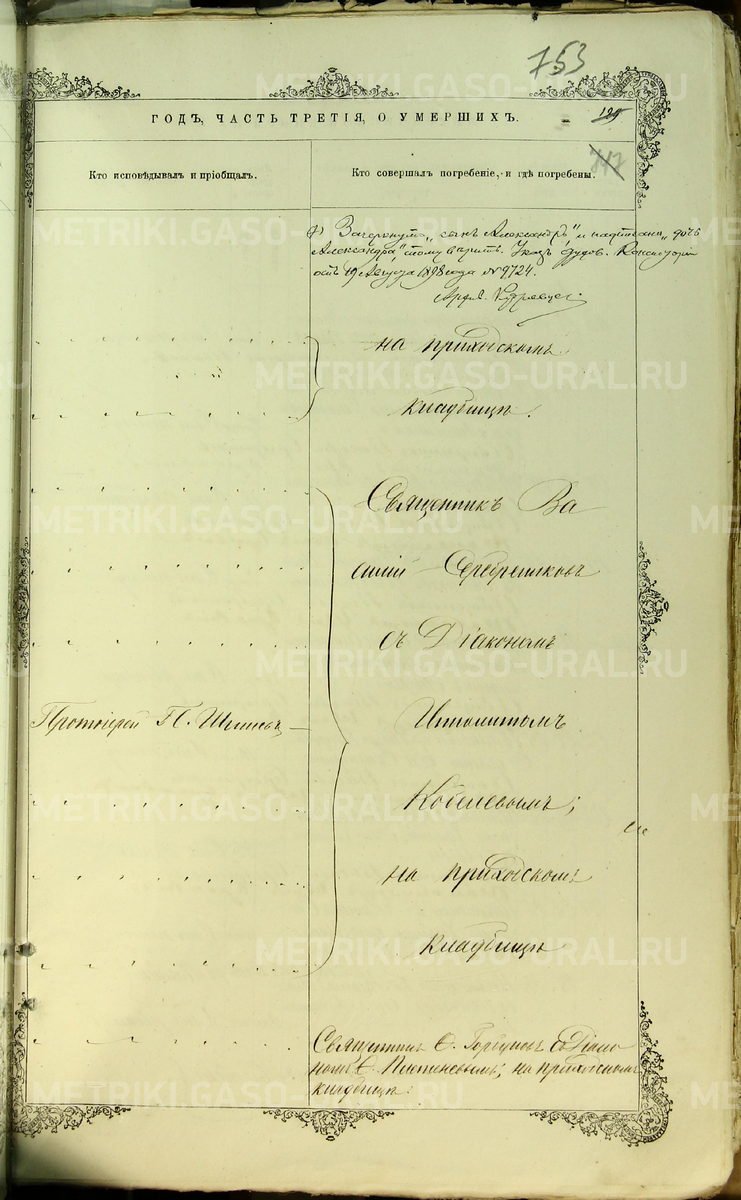 753
ГОДЪ, ЧАСТЬ ТРЕТІЯ, О УМЕРШИХЪ.
Кто исповѣдывалъ и пріобщалъ.
Кто совершалъ погребеніе, и гдѣ погребены.
Зачеркнутъ „сынъ Александръ" и надписано „дочь
Александра" тому вѣрить. Указъ Духов. Консисторіи
отъ 19 Августа 1898 года № 9724.
на приходскомъ
кладбищѣ.
Священникъ Ва
силій Серебренниковъ
съ Діакономъ
Протоіерей П.
Ипполитомъ
Кобелевымъ;
на приходскомъ
кладбищѣ
Священникъ Ѳ. Горбуновъ съ Діако
номъ на приходскомъ
кладбищѣ.
METRIKI.GASO-URAL.RU